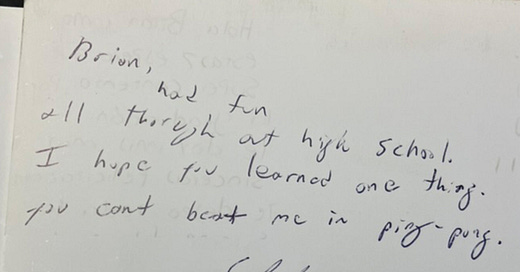 Brian,
had fun
all though at high school.
I hope you learned one thing.
you cant beat me in ping-pong.